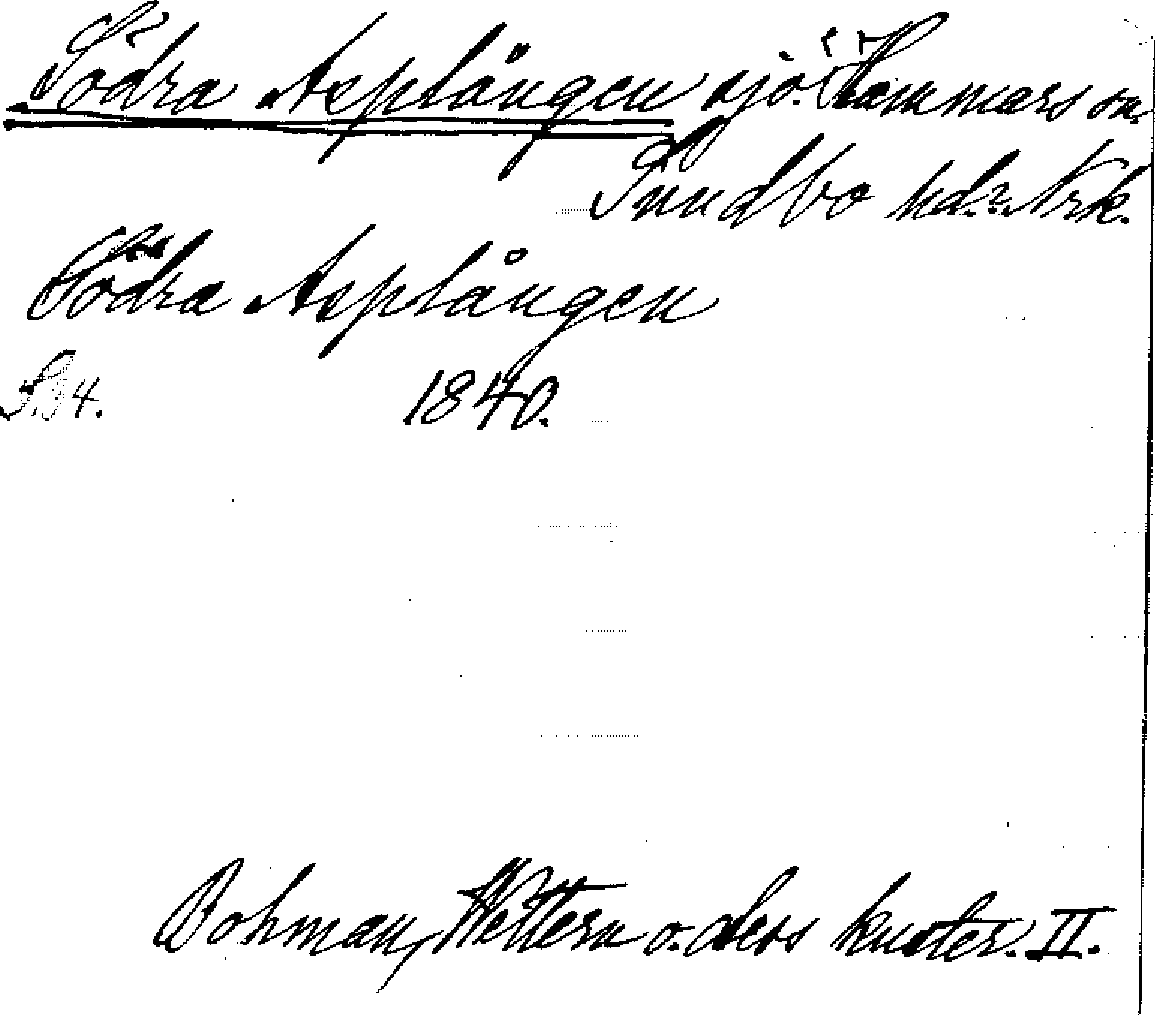 Södra Asplången sjö. Hammars sn.
Sundbo hd. Nrk.
Södra Asplången
S. 34. 1840.
Bohman, Wettern o. dess kuster. II.